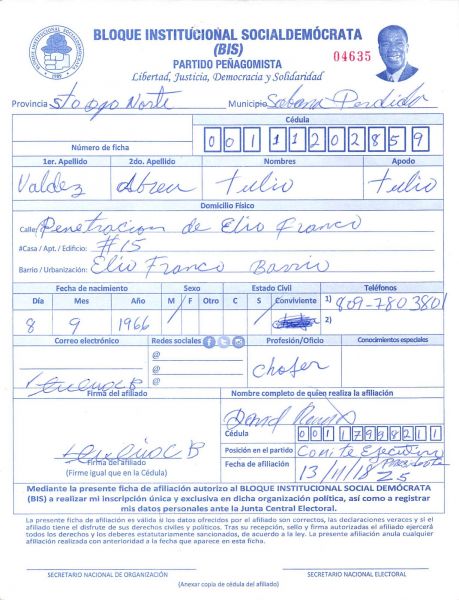 BLOQUE INSTITUCIONAL SOCIALDEMÓCRATA
(BIS)
PARTIDO PEÑAGOMISTA
Libertad, Justicia, Democracia y Solidaridad
04635
Provincia Sto Dgo Norte Municipio Sabana Perdida
Cédula
Número de ficha 0 0 1 1 1 2 0 2 8 5 9
1er. Apellido 2do. Apellido Nombres Apodo
Valdez Abreu Tulio Tulio
Domicilio Físico
Calle: Penetracion de Elio Franco
#Casa / Apt. / Edificio: #15
Barrio / Urbanización: Elio Franco Barrio
Fecha de nacimiento Sexo Estado Civil Teléfonos
Día Mes Año M F Otro C S Conviviente 1) 809-780 3801
8 9 1966 2)
Correo electrónico Redes sociales Profesión/Oficio Conocimientos especiales
@
@
@
chofer
Firma del afiliado Nombre completo de quien realiza la afiliación
David
Cédula
0 0 1 1 7 9 9 8 2 1 1
Posición en el partido Comite Ejecutivo
Firma del afiliado
(Firme igual que en la Cédula)
Fecha de afiliación 13/11/18
Mediante la presente ficha de afiliación autorizo al BLOQUE INSTITUCIONAL SOCIAL DEMÓCRATA
(BIS) a realizar mi inscripción única y exclusiva en dicha organización política, así como a registrar
mis datos personales ante la Junta Central Electoral.
La presente ficha de afiliación es valida si los datos ofrecidos por el afiliado son correctos, las declaraciones veraces y si el
afiliado tiene el disfrute de sus derechos civiles y políticos. Tras su recepción, sello y firma autorizadas el afiliado ejercerá
todos los derechos y los deberes estatutariamente sancionados, de acuerdo a la ley. La presente afiliación anula cualquier
afiliación realizada con anterioridad a la fecha que aparece en esta ficha.
SECRETARIO NACIONAL DE ORGANIZACIÓN SECRETARIO NACIONAL ELECTORAL
(Anexar copia de cédula del afiliado)